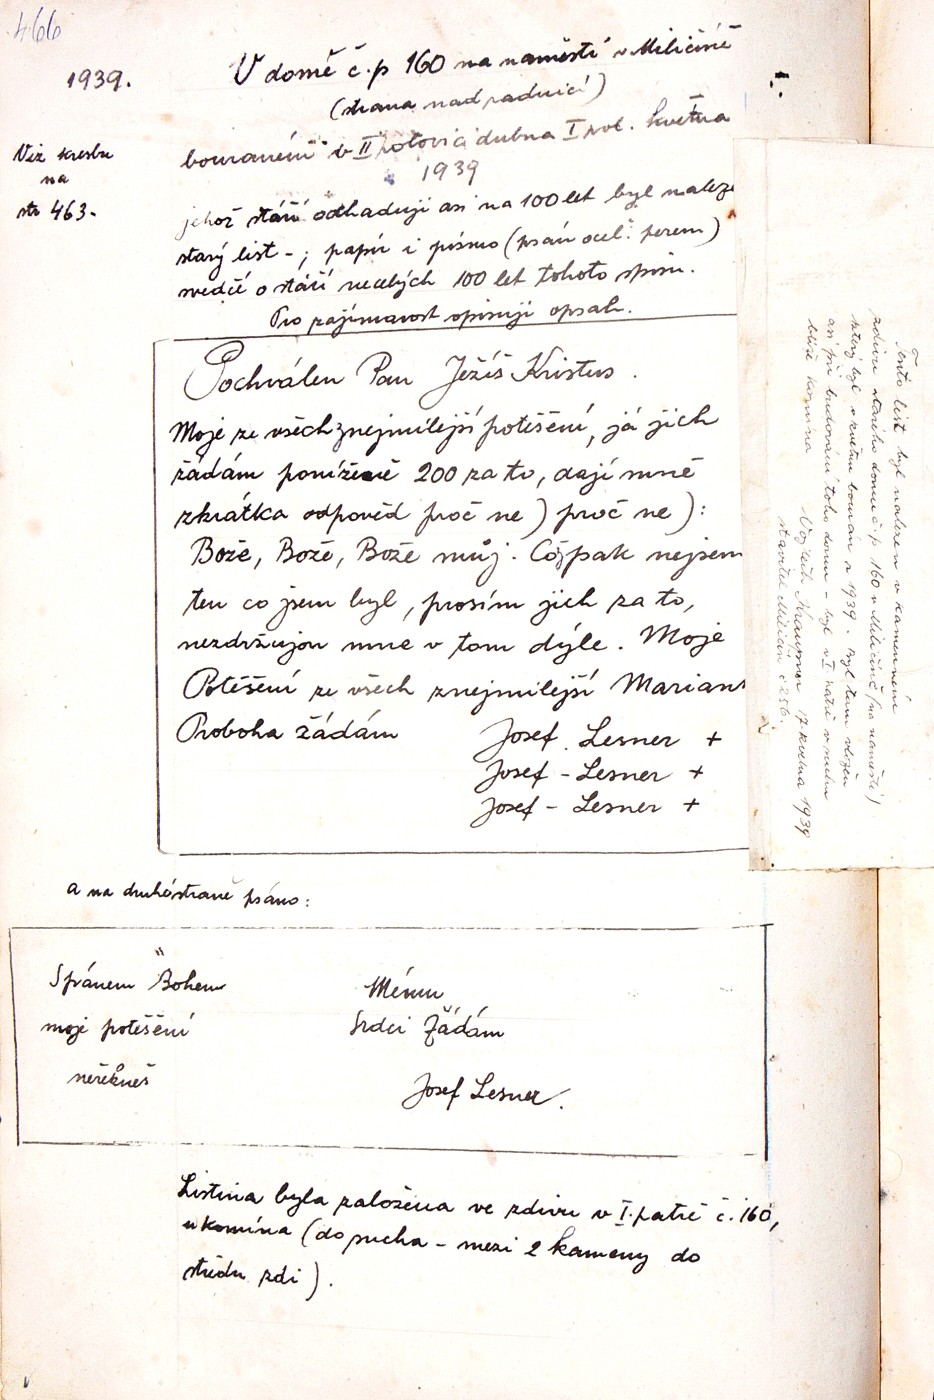 466
1939.
V domě č.p 160 na naměstí v Miličíně
(strana nad radnicí)
bouraném v II polovici dubna I pol. května
1939
Viz kresbu
na
str 463.
jehož stáří odhaduji asi na 100 let byl naleze
starý list - ; papír i písmo (psán ocel. perem)
svedčí o stáří necelých 100 let tohoto spisu.
Pro zajímavost opisuji obsah.
Pochválen Pan Ježíš Kristus.
Moje ze všech znejmilejší potěšení, já jich
žádám poníženě 200 za to, dají mně
zkrátka odpověd proč ne) proč ne):
Bože, Bože, Bože můj. Cožpak nejsem
ten co jsem byl, prosím jich za to,
nezdržujou mne v tom dýle. Moje
Potěšení ze všech znejmilejší Mariann
Proboha žádám
Josef Lesner +
Josef - Lesner +
Josef - Lesner +
a na druhé straně psáno:
Spánem Bohem
moje potěšení
neřekneš
Mému
Srdci Žádám
Josef Lesner.
Listina byla založena ve zdivu v I. patře č. 160,
u komína (do sucha - mezi 2 kameny do
středu zdi).
Tento list byl nalezen v kamenném
zdivu starého domu č.p 160 v Miličíně (na naměstí)
který byl v květnu bourán r 1939. Byl tam vložen
asi při budování toho domu - byl v I patře v rohu
blíže komína
Vojtěch 17. května 1939
stavitel Miličín č 256.